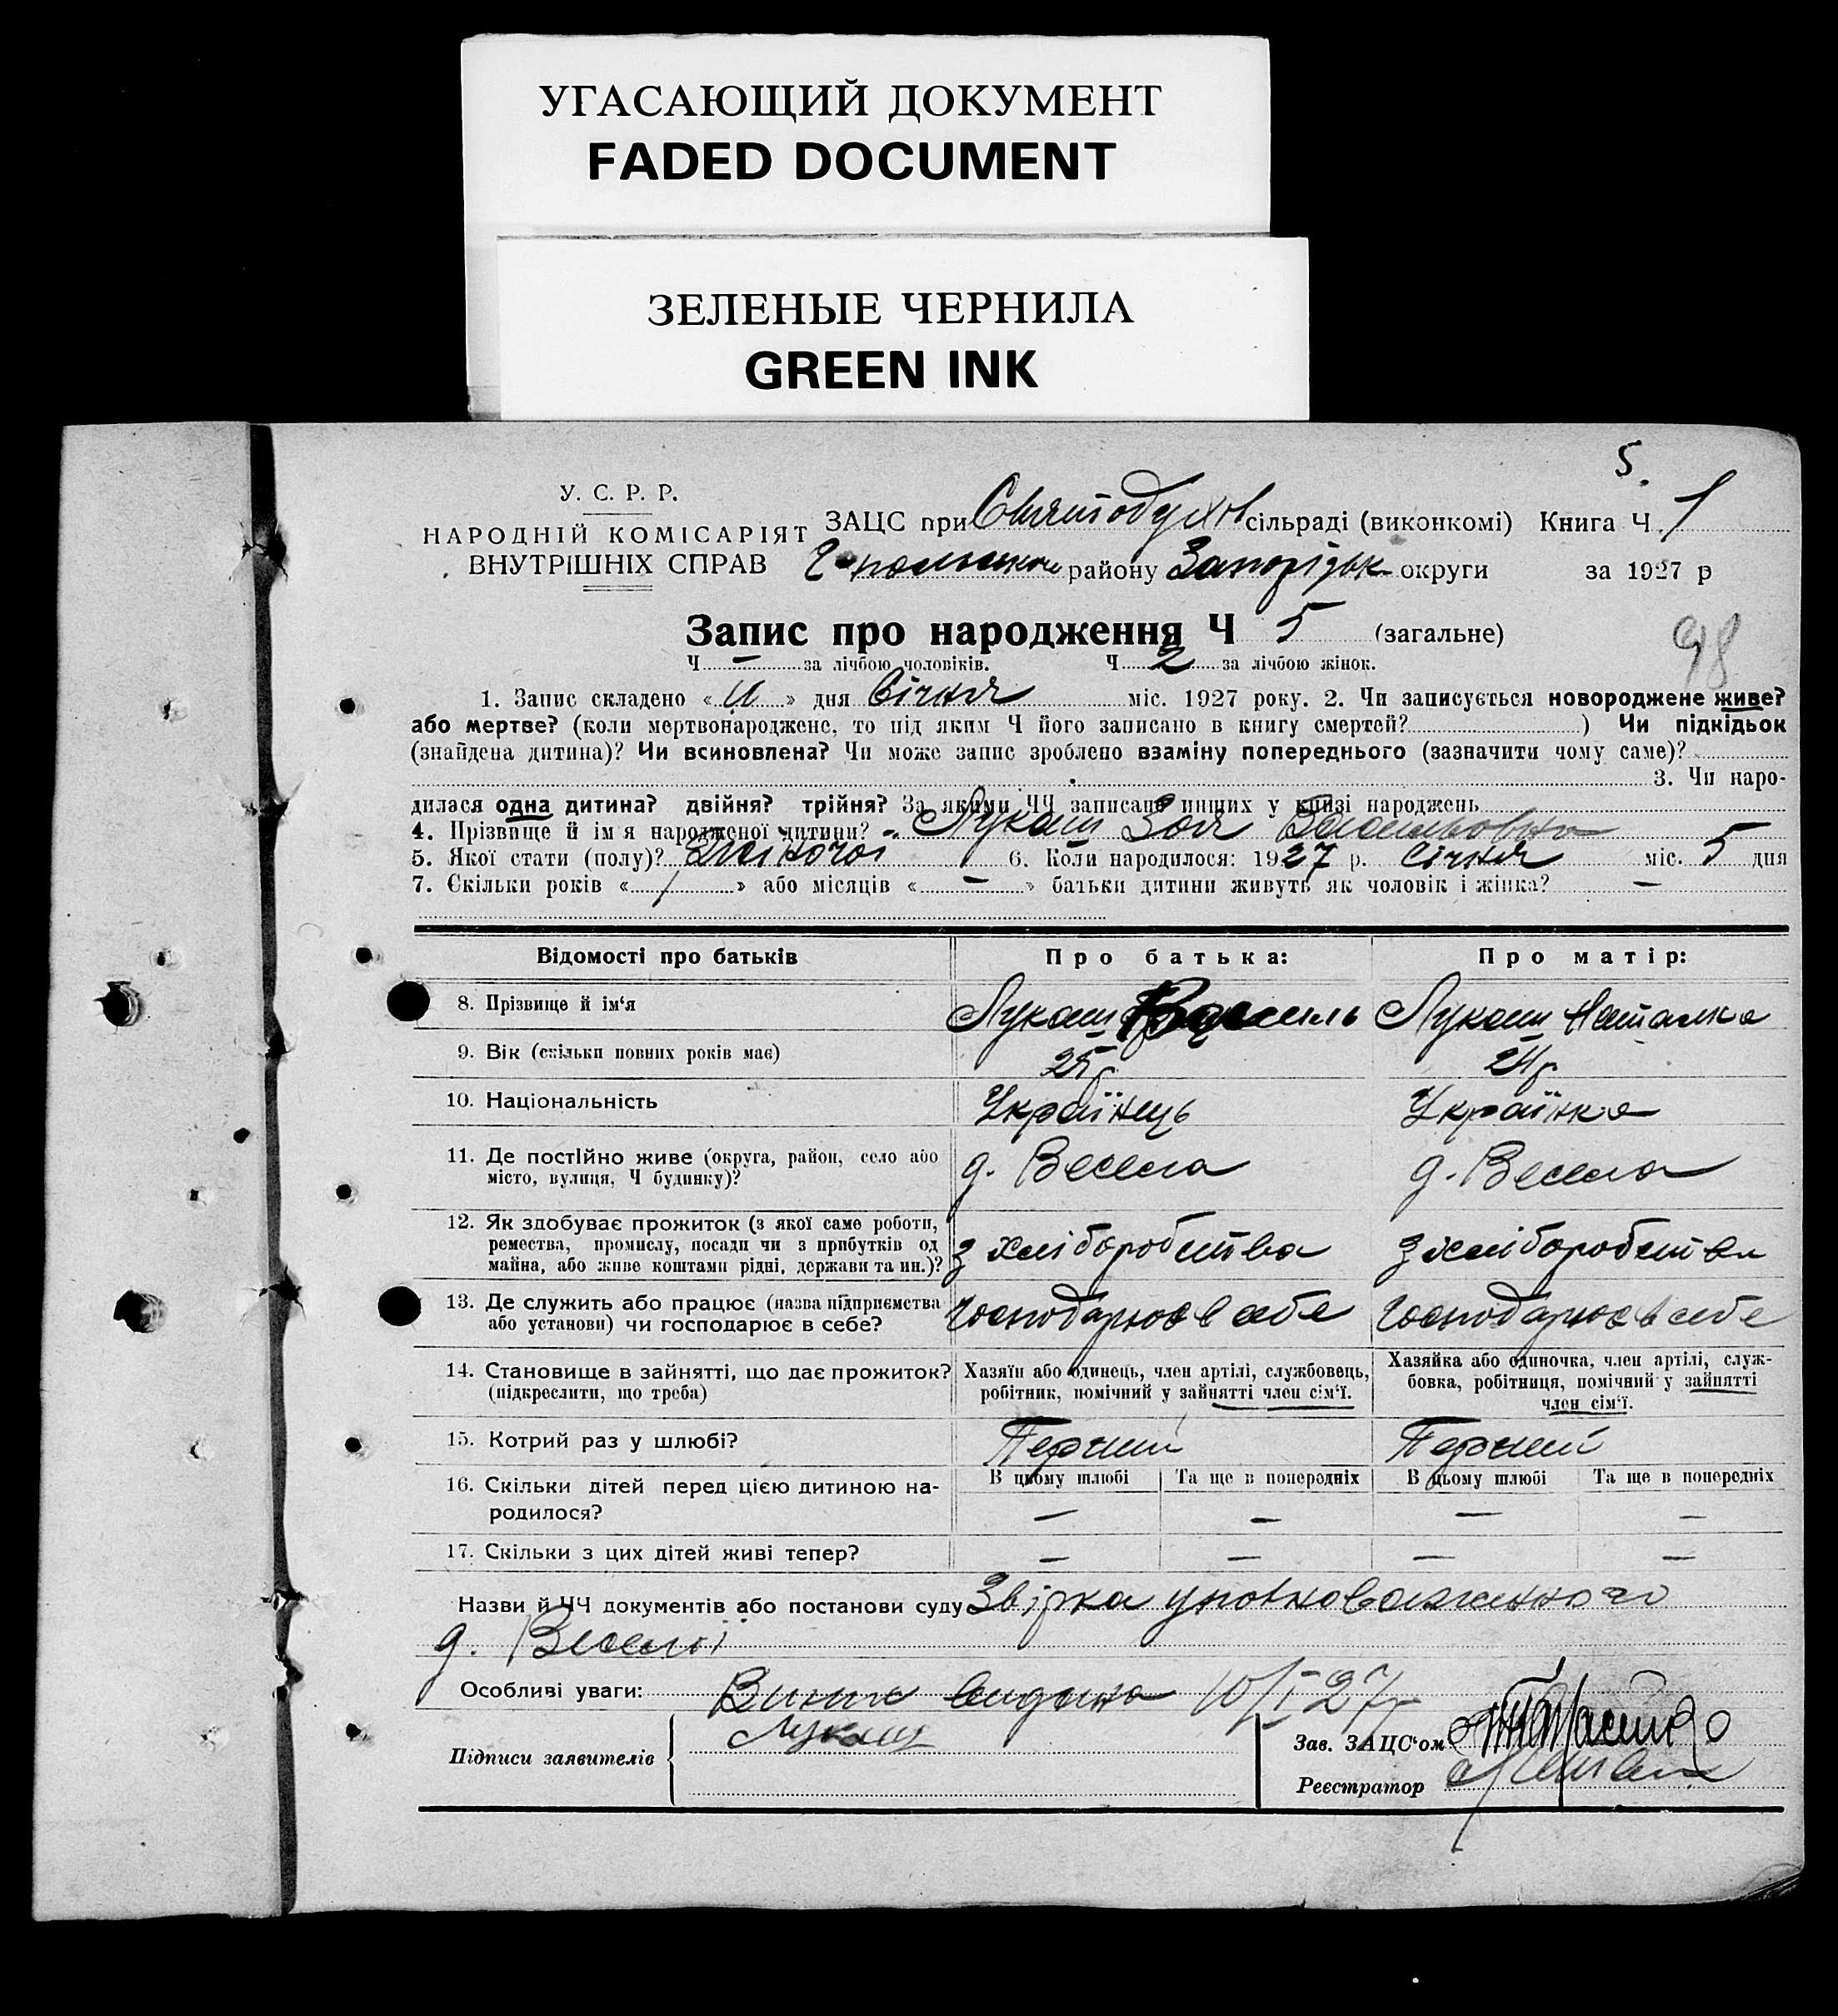 УГАСАЮЩИЙ ДОКУМЕНТ
FADED DOCUMENT
ЗЕЛЕНЫЕ ЧЕРНИЛА
GREEN INK
5.
У. С. Р. Р.
НАРОДНІЙ КОМІСАРІЯТ
ВНУТРІШНІХ СПРАВ
ЗАЦС при Святодухов сільраді (виконкомі) Книга Ч. 1
району Запорізьк округи за 1927 р
Запис про народження Ч 5 (загальне)
98
Ч — за лічбою чоловіків. Ч 2 за лічбою жінок.
1. Запис складено « » дня Січня міс. 1927 року. 2. Чи записується новороджене живе?
або мертве? (коли мертвонароджене, то під яким Ч його записано в книгу смертей? ) Чи підкідьок
(знайдена дитина)? Чи всиновлена? Чи може запис зроблено взаміну попереднього (зазначити чому саме)?
3. Чи наро-
дилася одна дитина? двійня? трійня? За якими ЧЧ записано инших у книзі народжень
4. Прізвище й ім'я народженої дитини? - Лукаш Зоя Васильовна
5. Якої стати (полу)? Жіночої 6. Коли народилося: 1927 р. Січня міс. 5 дня
7. Скільки років « » або місяців « — » батьки дитини живуть як чоловік і жінка? —
Відомості про батьків Про батька: Про матір:
8. Прізвище й ім'я Лукаш Василь Лукаш Наталка
9. Вік (скільки повних років має) 25 р. 24 р.
10. Національність Українець Українка
11. Де постійно живе (округа, район, село або
місто, вулиця, Ч будинку)? д. Весела д. Весела
12. Як здобуває прожиток (з якої саме роботи,
ремества, промислу, посади чи з прибутків од
майна, або живе коштами рідні, держави та ин.)? з хліборобства з хліборобства
13. Де служить або працює (назва підприємства
або установи) чи господарює в себе? Господарює в себе Господарює в себе
14. Становище в зайнятті, що дає прожиток?
(підкреслити, що треба)
Хазяїн або одинець, член артілі, службовець,
робітник, помічний у зайнятті член сім'ї.
Хазяйка або одиночка, член артілі, служ-
бовка, робітниця, помічний у зайнятті
член сім'ї.
15. Котрий раз у шлюбі? Перший Перший
В цьому шлюбі Та ще в попередніх В цьому шлюбі Та ще в попередніх
16. Скільки дітей перед цією дитиною на-
родилося? — — — —
17. Скільки з цих дітей живі тепер? — — — —
Назви й ЧЧ документів або постанови суду Звірка уповноваженного
д. Веселої
Особливі уваги: видана 10/I 27р
Підписи заявителів Лукаш
Зав. ЗАЦС'ом
Реєстратор